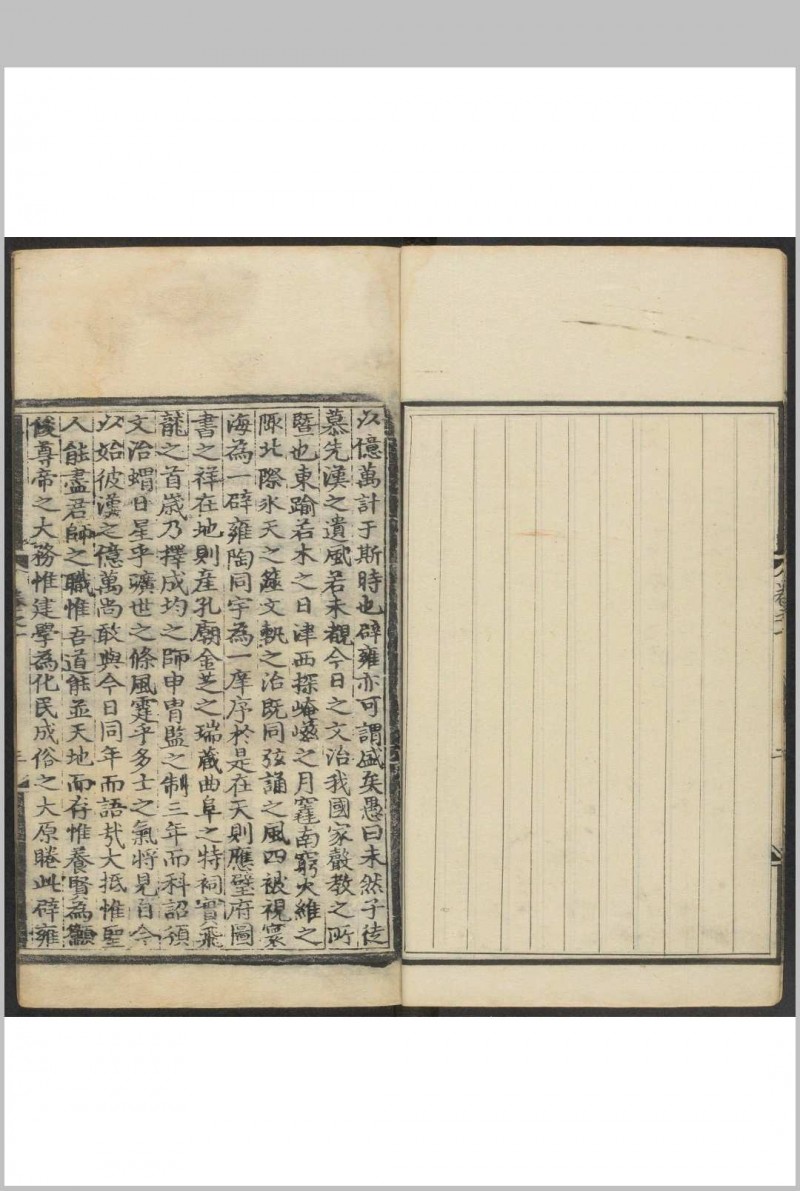 卷之一
二
以億萬計于斯時也辟雍亦可謂盛矣愚曰未然子徒
慕先漢之遺風若未覩今日之文治我國家聲教之所
暨也東踰若木之日津西探崦嵫之月窟南窮火維之
陬北際氷天之墟文軌之治既同弦誦之風四被視寰
海為一辟雍陶同宇為一庠序於是在天則應璧府圖
書之祥在地則產孔廟金芝之瑞蔵曲阜之特祠實飛
龍之首歲乃擇成均之師申胄監之制三年而科詔頒
文治蝟日星乎曠世之條風霆乎多士之氣將見自今
以始彼漢之億萬尚敢與今日同年而語㢤大抵惟聖
人能盡君師之職惟吾道能並天地而存惟養賢為籲
俊尊帝之大務惟建學為化民成俗之大原睠此辟雍
卷之一
三